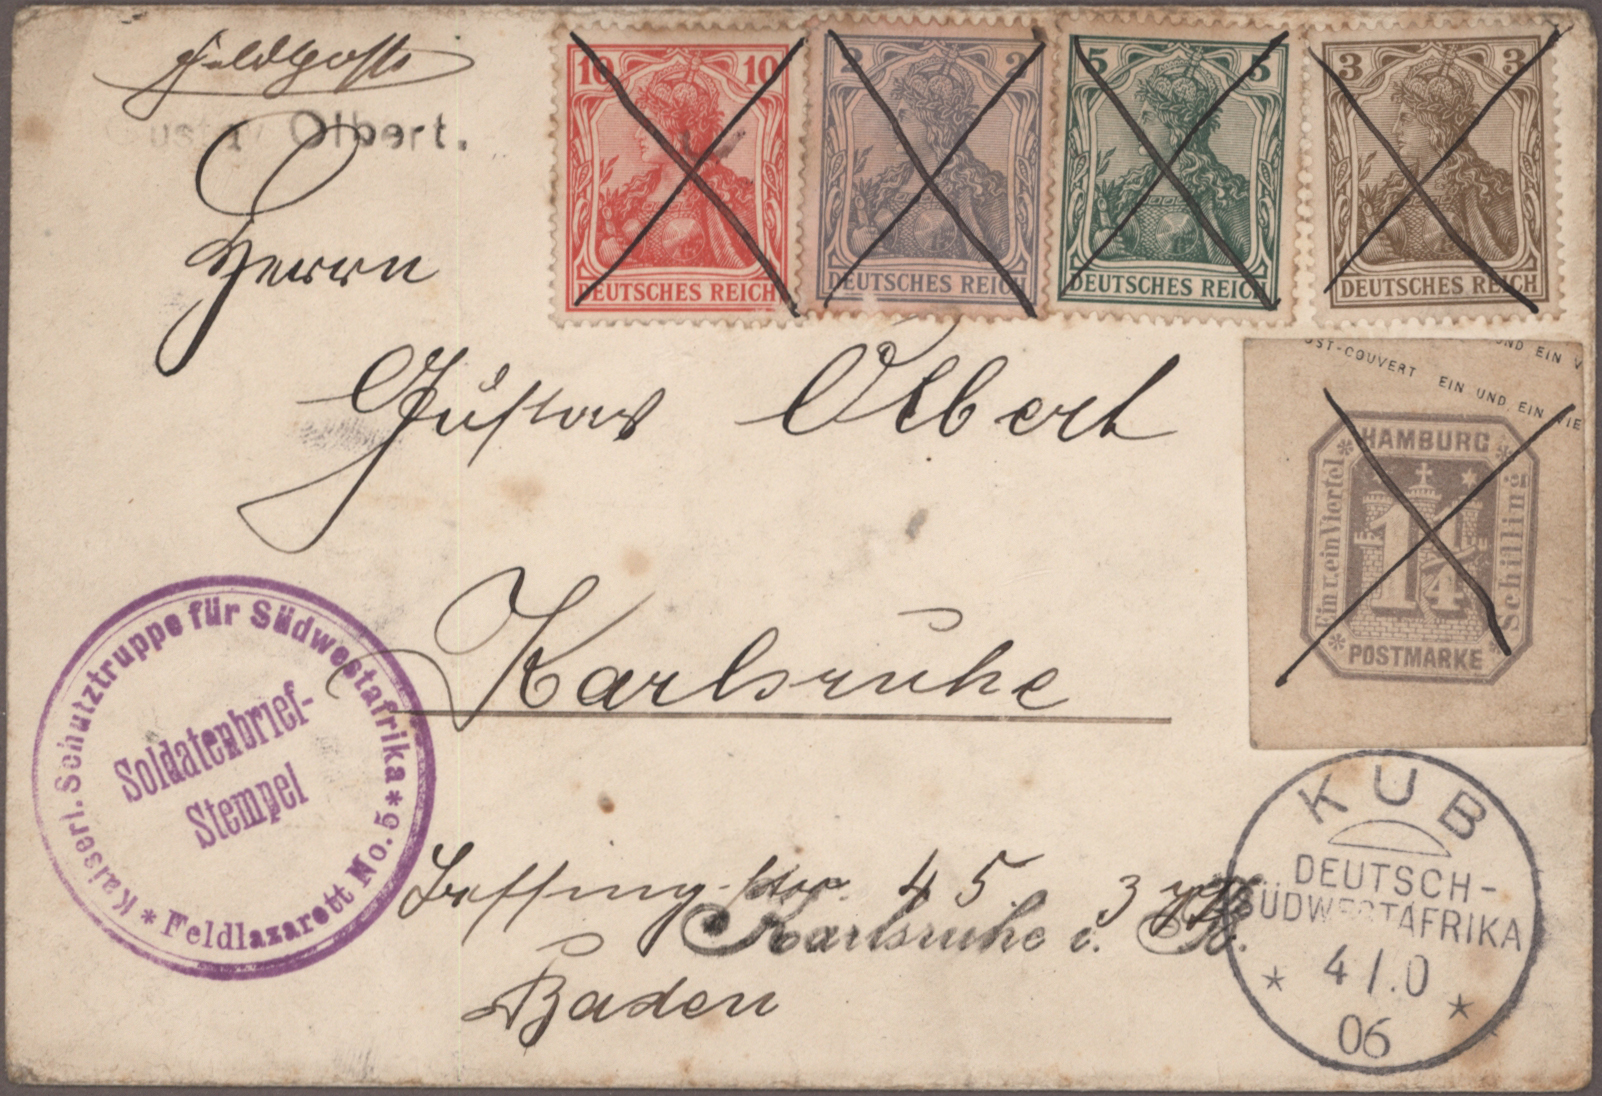 Feldpost
Gustav Olbert.
Herrn
Gustav Olbert
Karlsruhe
Lessing-str. 45. 3
Karlsruhe i. B.
Baden
10 10
DEUTSCHES REICH
2 2
DEUTSCHES REICH
5 5
DEUTSCHES REICH
3 3
DEUTSCHES REICH
UND EIN V
OST-COUVERT EIN UND EIN VIE
HAMBURG
Ein u. ein Viertel
1 1/4
Schilling
POSTMARKE
Kaiserl. Schutztruppe für Südwestafrika * Feldlazarett No. 5 *
Soldatenbrief-
Stempel
KUB
DEUTSCH-
SÜDWESTAFRIKA
* 4/1.0 *
06